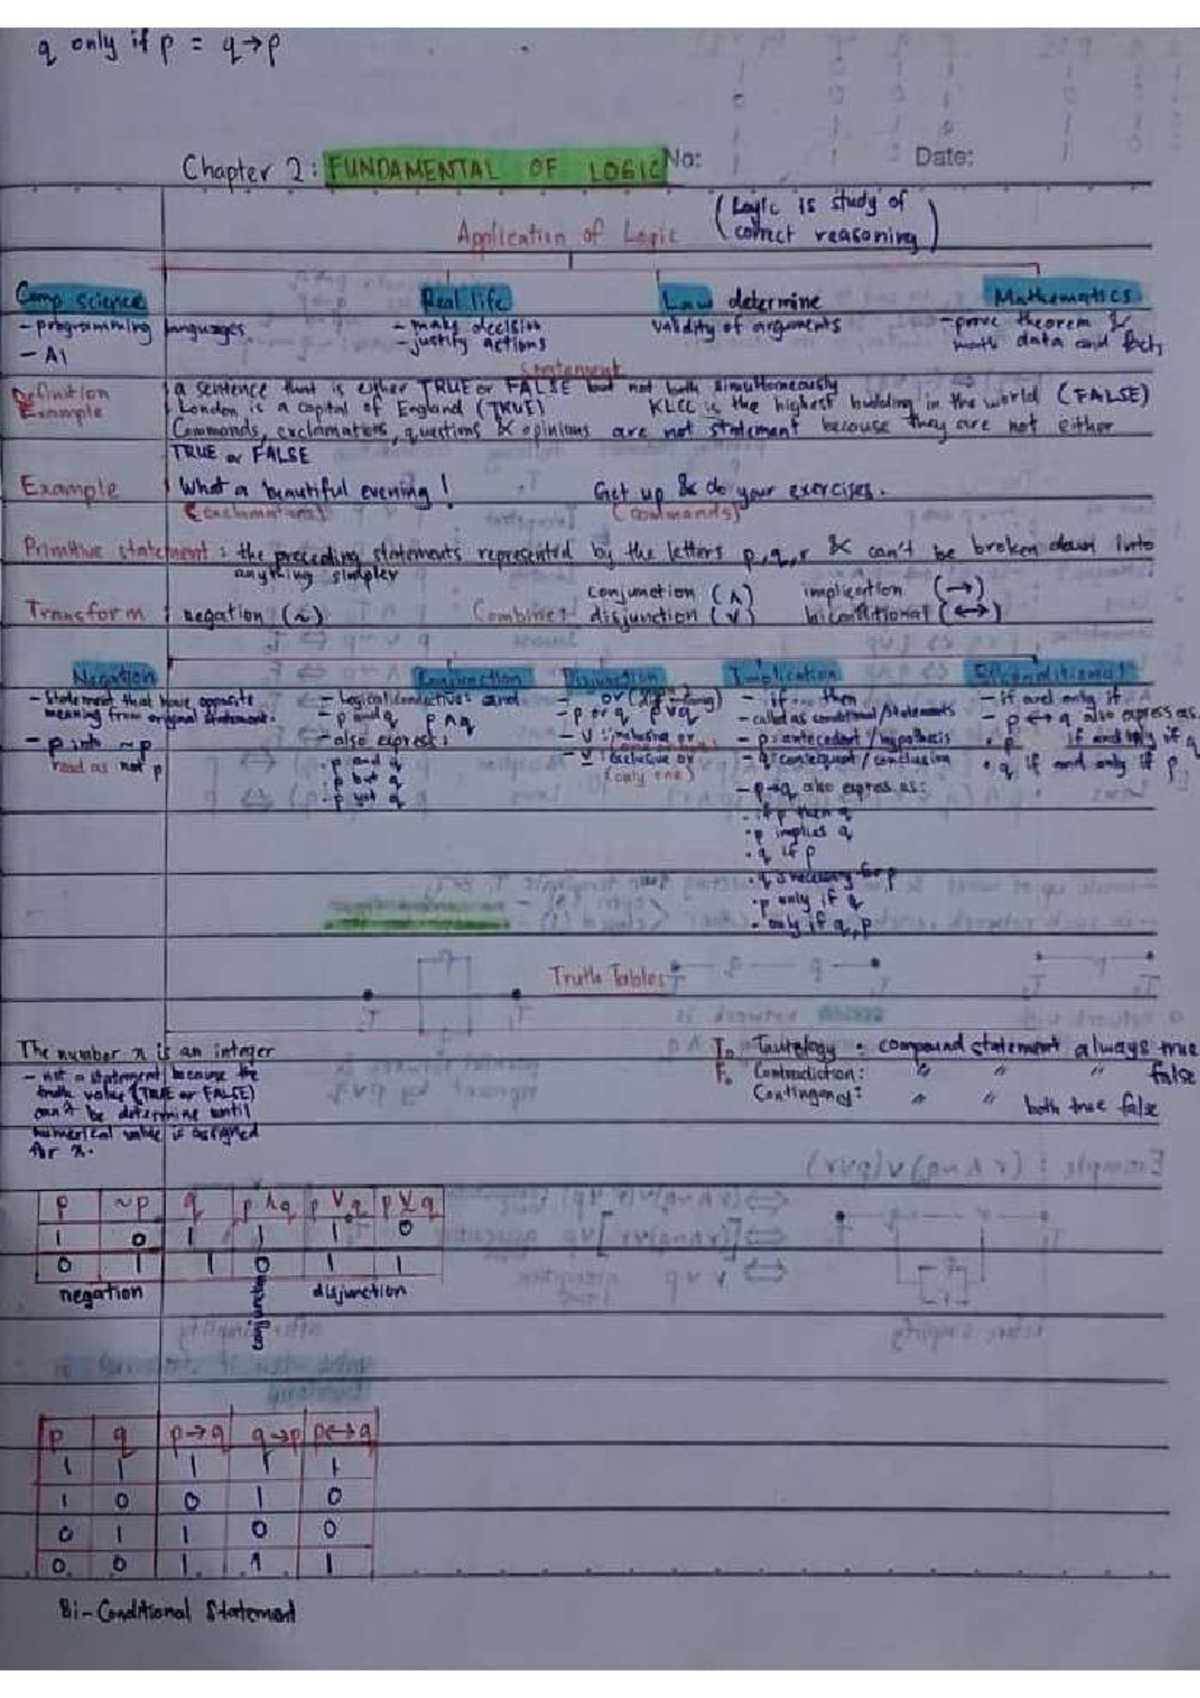 q only if p = q→p
Chapter 2: FUNDAMENTAL OF LOGIC No: Date:
Application of Logic (Logic is study of
correct reasoning)
Comp science Real life Law determine Mathematics
- programming languages. - make decision validity of arguments - prove theorem &
- AI - justify actions math data and facts
Statement
Definition a sentence that is either TRUE or FALSE but not both simultaneously
Example London is a capital of England (TRUE) KLCC is the highest building in the world (FALSE)
Commands, exclamations, questions & opinions are not statement because they are not either
TRUE or FALSE
Example What a beautiful evening! Get up & do your exercises.
(exclamations) (commands)
Primitive statement: the preceding statements represented by the letters p,q,r & can't be broken down into
anything simpler
Transform : negation (~) Combine: conjunction (∧) implication (→)
disjunction (∨) biconditional (↔)
Negation Conjunction Disjunction Implication Biconditional
- Statement that have opposite
meaning from original statement.
- p into ~p
read as not p
- logical connective: and
- p and q p ∧ q
- also express:
· p and q
· p but q
· p yet q
- or
- p or q p∨q
- ∨ : inclusive or
- ⊻ : exclusive or
(only one)
- if then
- called as conditional/statements
- p: antecedent/hypothesis
- q: consequent/conclusion
- p→q also express as:
· if p then q
· p implies q
· q if p
· q is necessary for p
· p only if q
· only if q, p
- if and only if
- p ↔ q also express as
· p if and only if q
· q if and only if p
Truth Tables
The number x is an integer
- not a statement because the
truth value (TRUE or FALSE)
can't be determine until
numerical value is assigned
for x.
T₀ Tautology : compound statement always true
F₀ Contradiction: " " " false
Contingency: " " both true false
p ~p q p∧q p∨q p⊻q
1 0 1 1 1 0
0 1 1 0 1 1
negation conjunction disjunction
p q p→q q→p p↔q
1 1 1 1 1
1 0 0 1 0
0 1 1 0 0
0 0 1 1 1
Bi-Conditional Statement